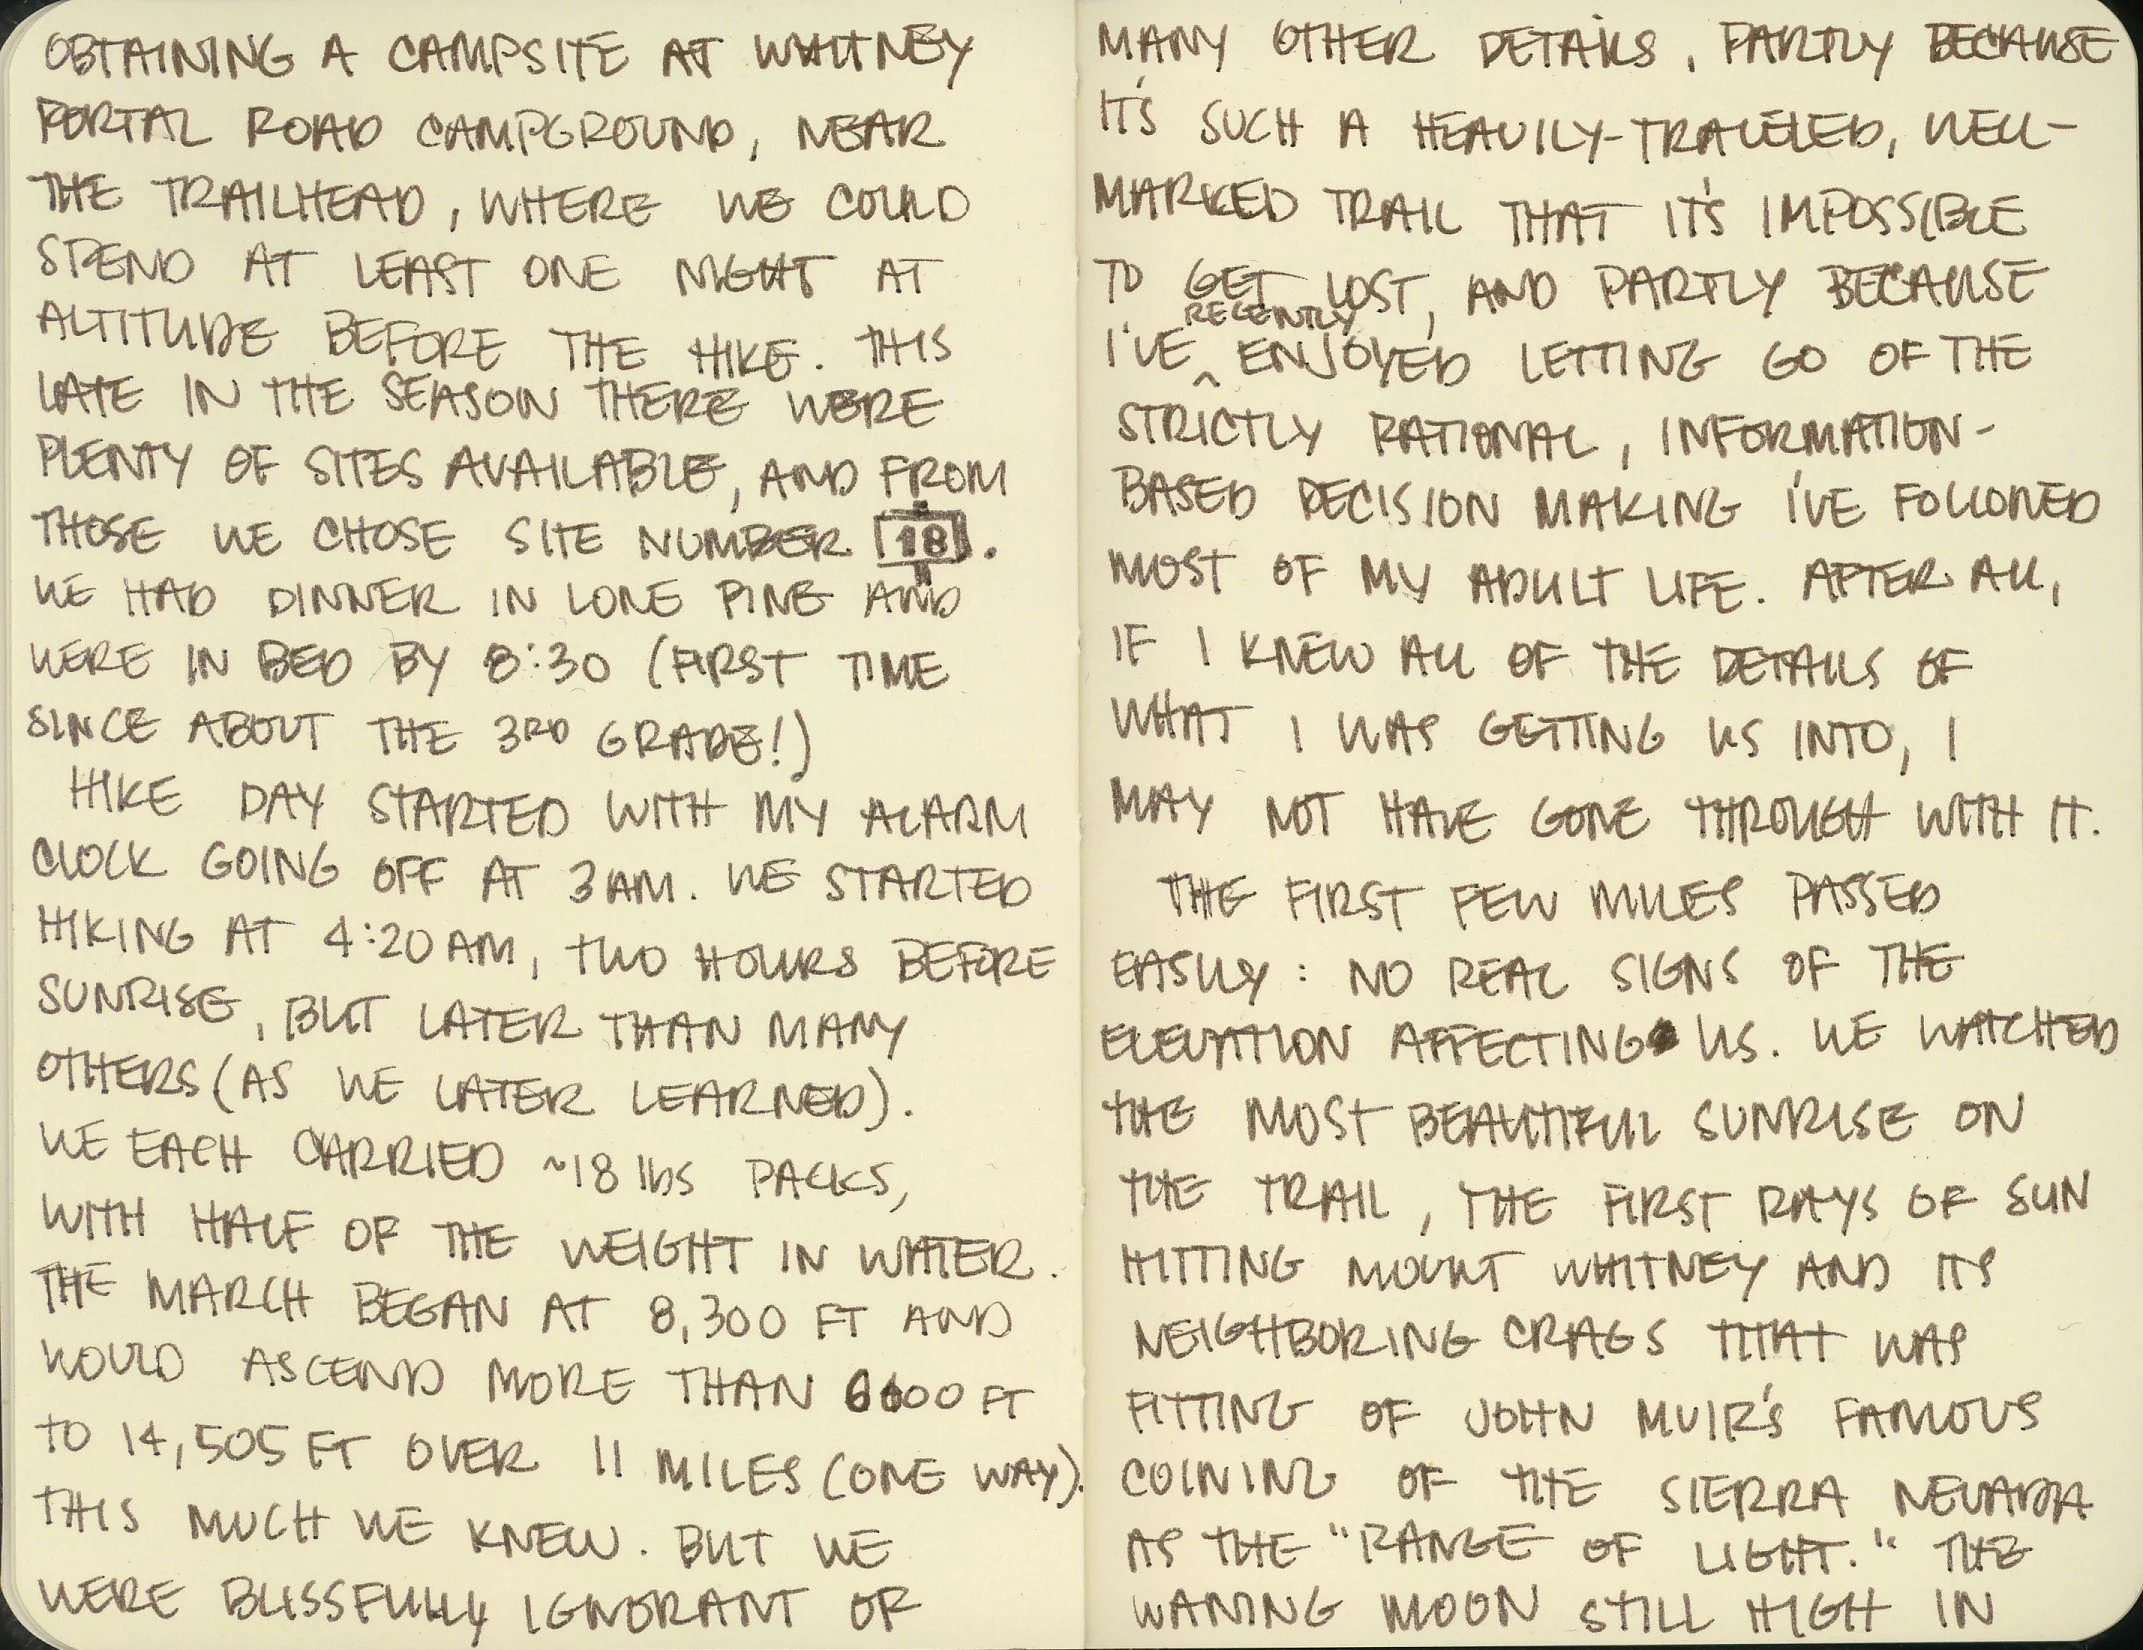 OBTAINING A CAMPSITE AT WHITNEY
PORTAL ROAD CAMPGROUND, NEAR
THE TRAILHEAD, WHERE WE COULD
SPEND AT LEAST ONE NIGHT AT
ALTITUDE BEFORE THE HIKE. THIS
LATE IN THE SEASON THERE WERE
PLENTY OF SITES AVAILABLE, AND FROM
THOSE WE CHOSE SITE NUMBER 18.
WE HAD DINNER IN LONE PINE AND
WERE IN BED BY 8:30 (FIRST TIME
SINCE ABOUT THE 3RD GRADE!)
HIKE DAY STARTED WITH MY ALARM
CLOCK GOING OFF AT 3AM. WE STARTED
HIKING AT 4:20AM, TWO HOURS BEFORE
SUNRISE, BUT LATER THAN MANY
OTHERS (AS WE LATER LEARNED).
WE EACH CARRIED ~18 lbs PACKS,
WITH HALF OF THE WEIGHT IN WATER.
THE MARCH BEGAN AT 8,300 FT AND
WOULD ASCEND MORE THAN 6100 FT
TO 14,505 FT OVER 11 MILES (ONE WAY).
THIS MUCH WE KNEW. BUT WE
WERE BLISSFULLY IGNORANT OF
MANY OTHER DETAILS, PARTLY BECAUSE
IT'S SUCH A HEAVILY-TRAVELED, WELL-
MARKED TRAIL THAT IT'S IMPOSSIBLE
TO GET LOST, AND PARTLY BECAUSE
I'VE RECENTLY ENJOYED LETTING GO OF THE
STRICTLY RATIONAL, INFORMATION-
BASED DECISION MAKING I'VE FOLLOWED
MOST OF MY ADULT LIFE. AFTER ALL,
IF I KNEW ALL OF THE DETAILS OF
WHAT I WAS GETTING US INTO, I
MAY NOT HAVE GONE THROUGH WITH IT.
THE FIRST FEW MILES PASSED
EASILY: NO REAL SIGNS OF THE
ELEVATION AFFECTING US. WE WATCHED
THE MOST BEAUTIFUL SUNRISE ON
THE TRAIL, THE FIRST RAYS OF SUN
HITTING MOUNT WHITNEY AND ITS
NEIGHBORING CRAGS THAT WAS
FITTING OF JOHN MUIR'S FAMOUS
COINING OF THE SIERRA NEVADA
AS THE "RANGE OF LIGHT." THE
WANING MOON STILL HIGH IN